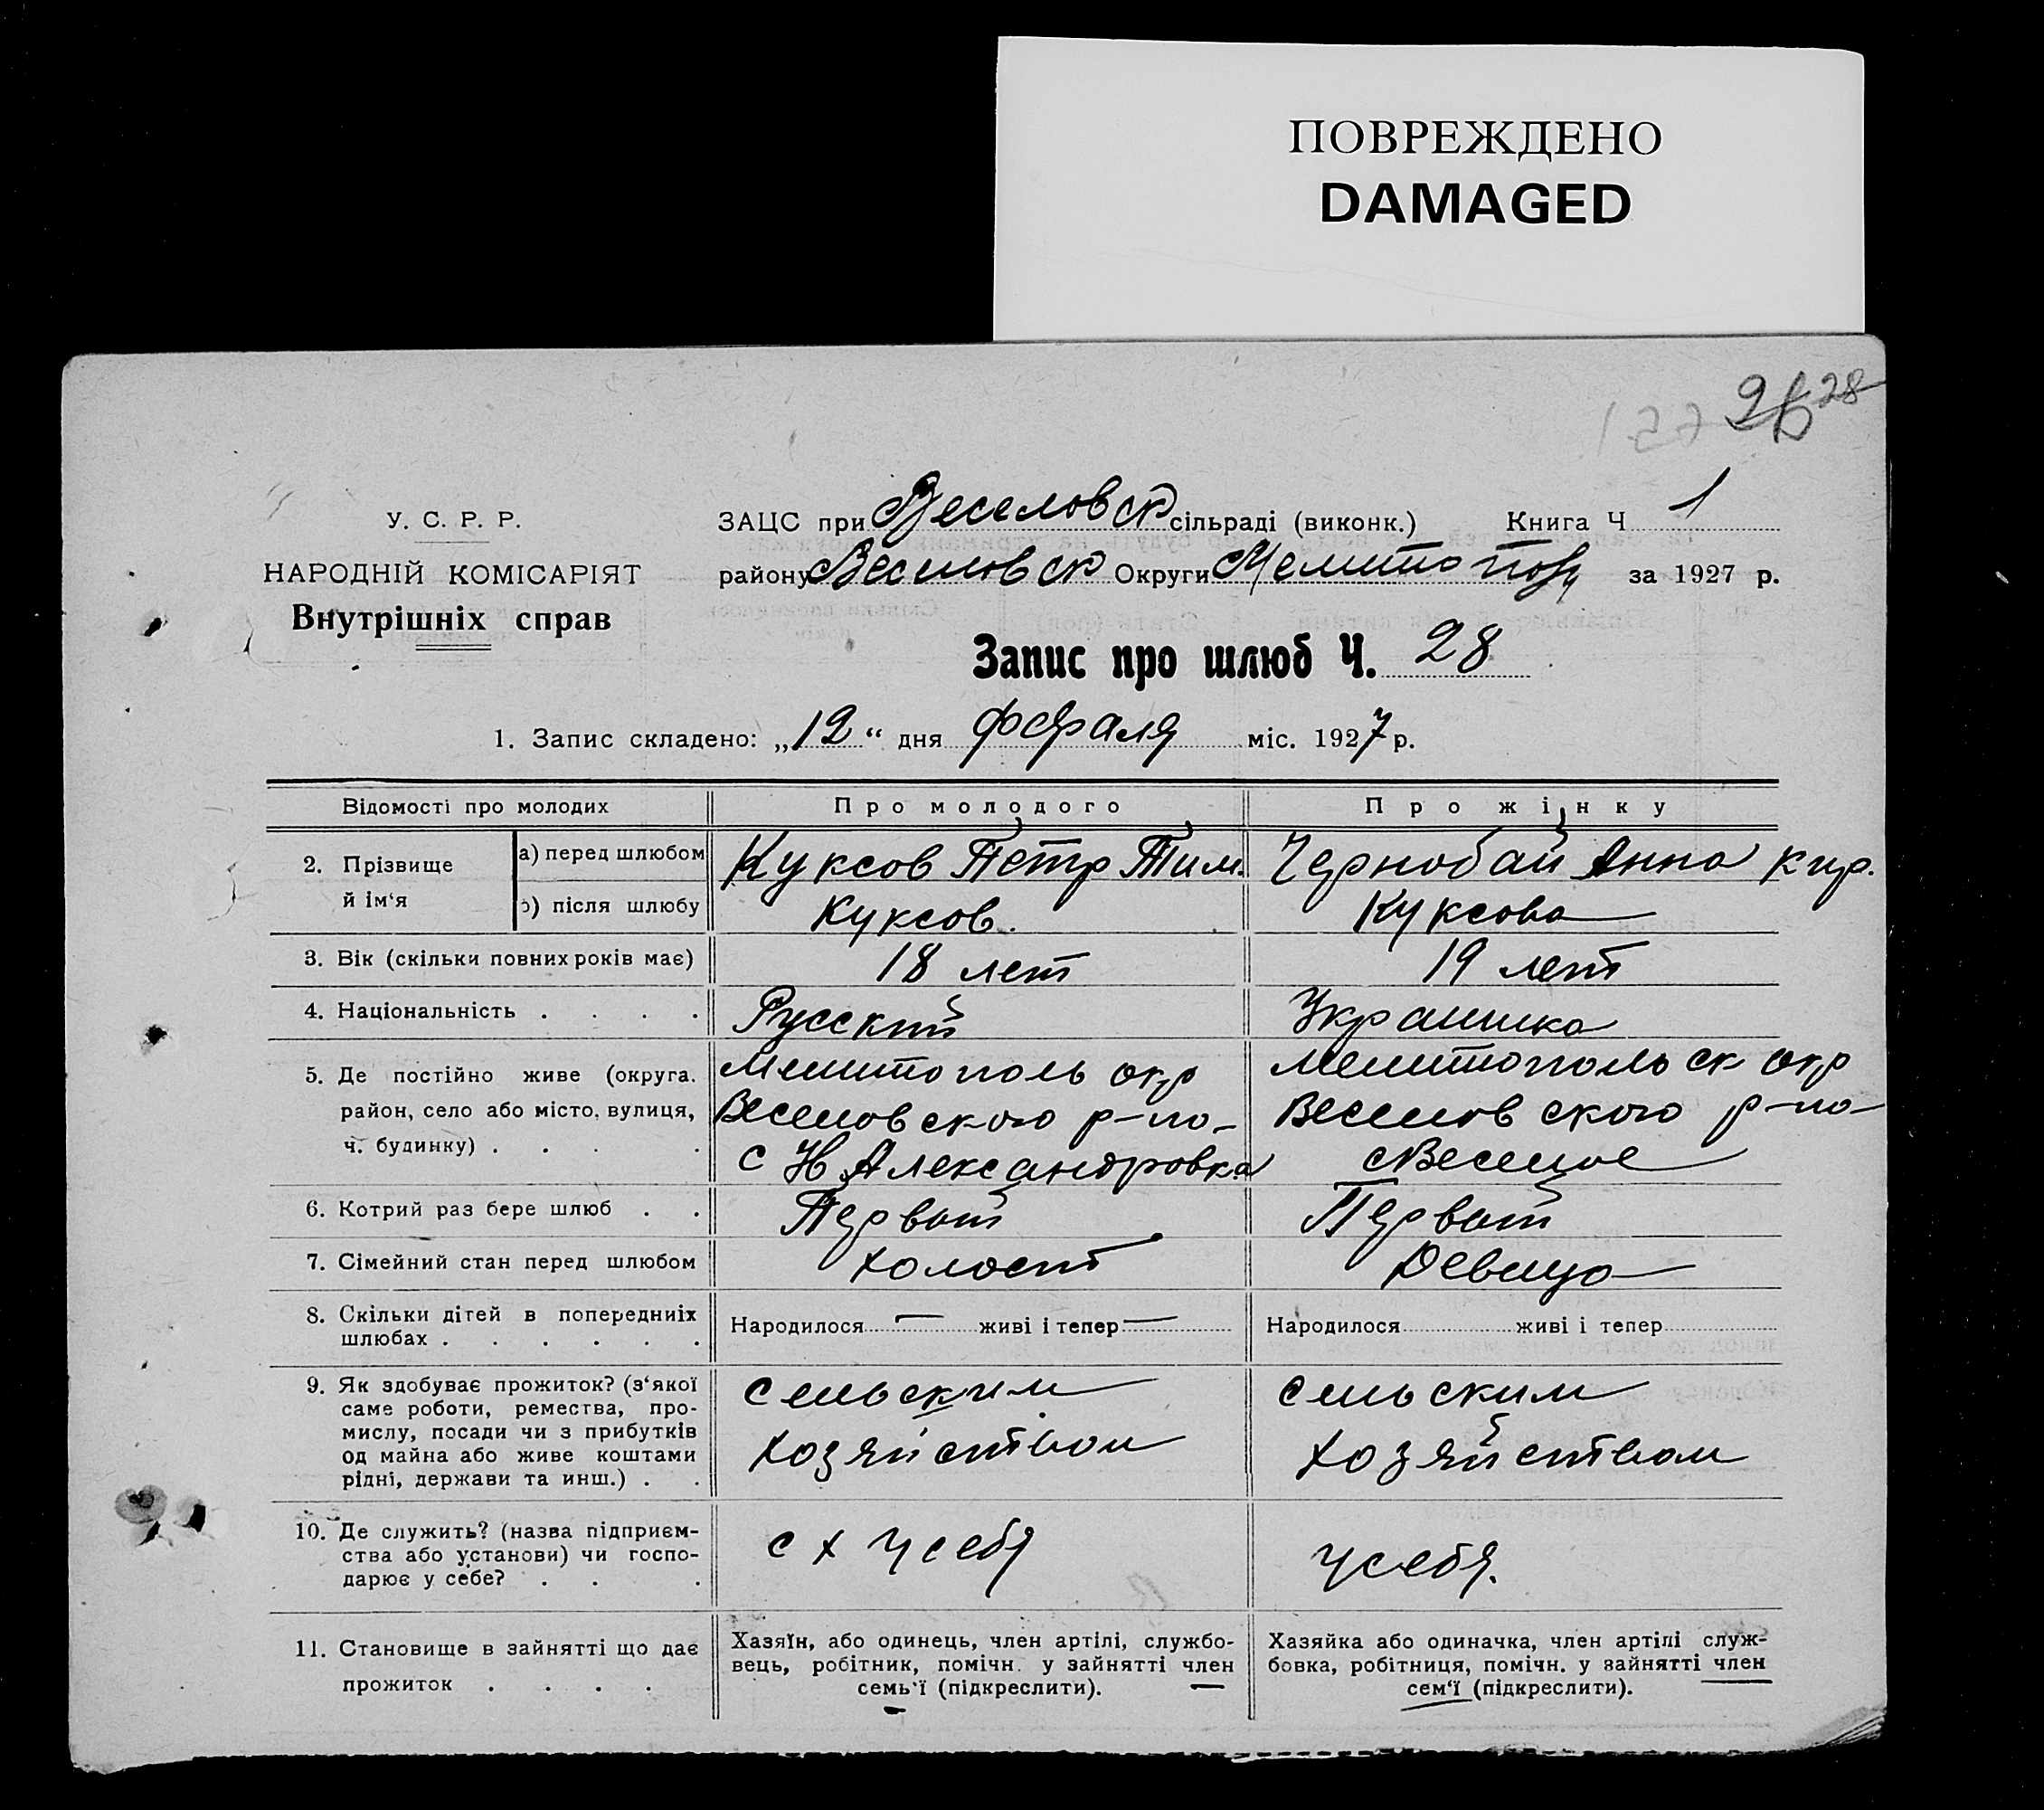 ПОВРЕЖДЕНО
DAMAGED
28
У. С. Р. Р.
НАРОДНІЙ КОМІСАРІЯТ
Внутрішніх справ
ЗАЦС при Веселовск сільраді (виконк.) Книга Ч 1
району Веселовск Округи за 1927 р.
Запис про шлюб Ч. 28
1. Запис складено: „12“ дня февраля міс. 1927 р.
Відомості про молодих Про молодого Про жінку
2. Прізвище й ім‘я
а) перед шлюбом Куксов Петр Тим. Чернобай Анна Кир.
б) після шлюбу Куксов. Куксова
3. Вік (скільки повних років має) 18 лет 19 лет
4. Національність . . . . Русский Украинка
5. Де постійно живе (округа. Мелитополь окр Мелитопольск окр
район, село або місто, вулиця, Веселовского р-на Веселовского р-на
ч. будинку) . . . . с Н Александровка с Веселое
6. Котрий раз бере шлюб . . Первый Первый
7. Сімейний стан перед шлюбом холост Девица
8. Скільки дітей в попередниіх
шлюбах . . . . . .
Народилося — живі і тепер — Народилося живі і тепер
9. Як здобуває прожиток? (з‘якої
саме роботи, ремества, про-
мислу, посади чи з прибутків
од майна або живе коштами
рідні, держави та инш.) . .
сельским
хозяйством
сельским
хозяйством
10. Де служить? (назва підприєм-
ства або установи) чи госпо-
дарює у себе? . . .
с х у себя
у себя.
11. Становище в зайнятті що дає
прожиток . . . .
Хазяїн, або одинець, член артілі, службо-
вець, робітник, помічн. у зайнятті член
семь‘ї (підкреслити).
Хазяйка або одиначка, член артілі служ-
бовка, робітниця, помічн. у зайнятті член
сем‘ї (підкреслити).